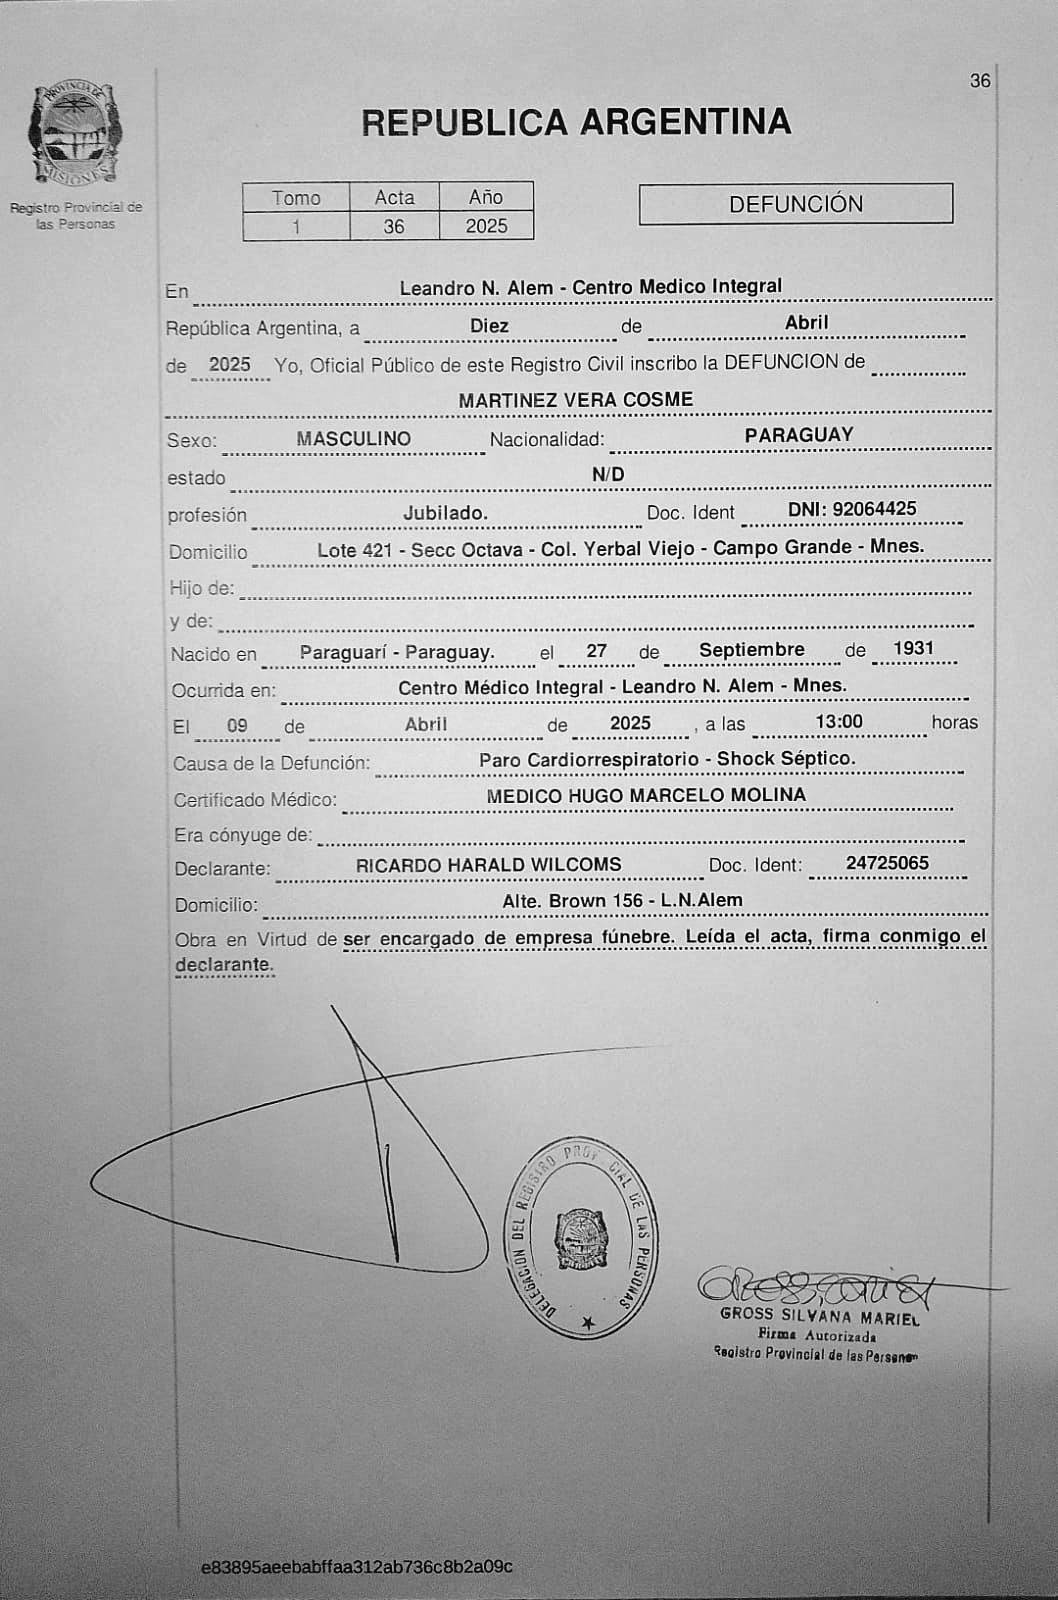 36
PROVINCIA DE
MISIONES
Registro Provincial de
las Personas
REPUBLICA ARGENTINA
Tomo Acta Año
1 36 2025
DEFUNCIÓN
En Leandro N. Alem - Centro Medico Integral
República Argentina, a Diez de Abril
de 2025 Yo, Oficial Público de este Registro Civil inscribo la DEFUNCION de
MARTINEZ VERA COSME
Sexo: MASCULINO Nacionalidad: PARAGUAY
estado N/D
profesión Jubilado. Doc. Ident DNI: 92064425
Domicilio Lote 421 - Secc Octava - Col. Yerbal Viejo - Campo Grande - Mnes.
Hijo de:
y de:
Nacido en Paraguarí - Paraguay. el 27 de Septiembre de 1931
Ocurrida en: Centro Médico Integral - Leandro N. Alem - Mnes.
El 09 de Abril de 2025 , a las 13:00 horas
Causa de la Defunción: Paro Cardiorrespiratorio - Shock Séptico.
Certificado Médico: MEDICO HUGO MARCELO MOLINA
Era cónyuge de:
Declarante: RICARDO HARALD WILCOMS Doc. Ident: 24725065
Domicilio: Alte. Brown 156 - L.N.Alem
Obra en Virtud de ser encargado de empresa fúnebre. Leída el acta, firma conmigo el
declarante.
DELEGACION DEL REGISTRO PROV CIAL DE LAS PERSONAS
GROSS SILVANA MARIEL
Firma Autorizada
Registro Provincial de las Personas
e83895aeebabffaa312ab736c8b2a09c